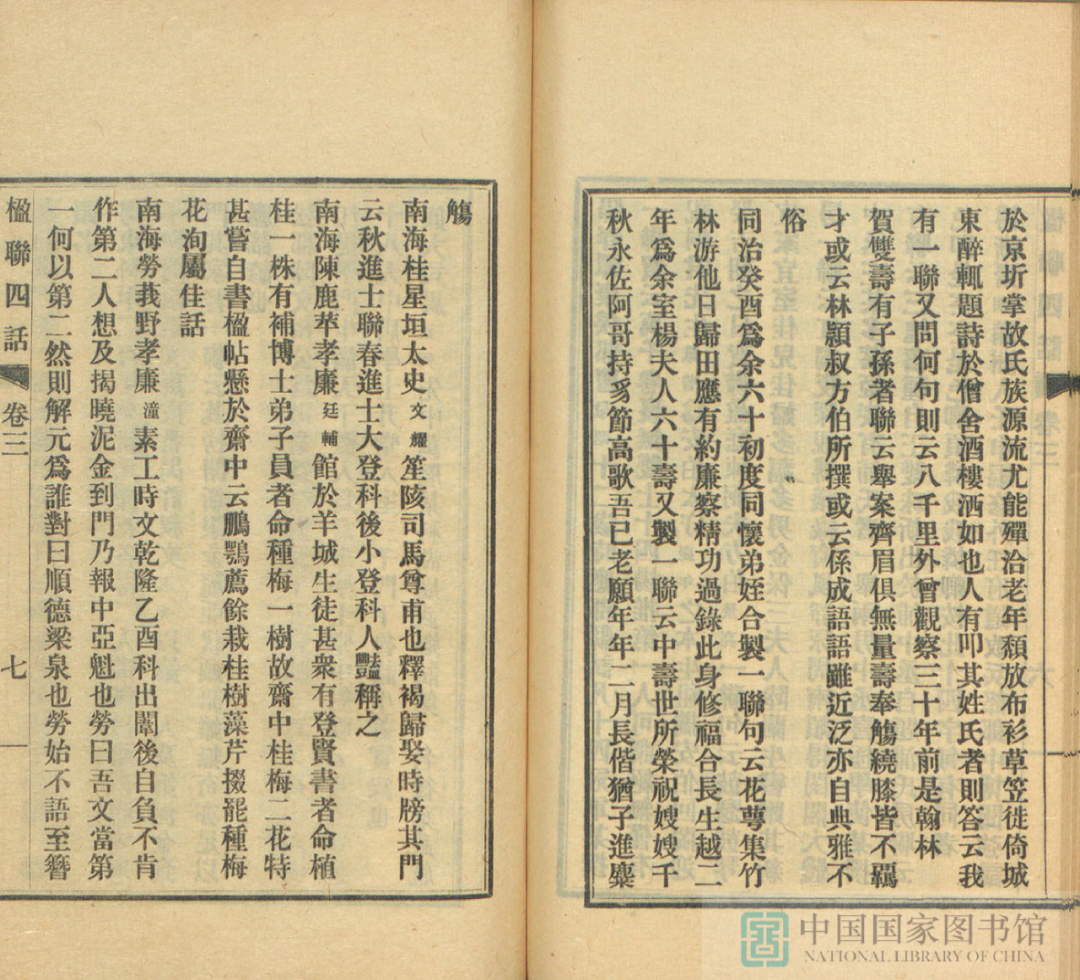 於京圻掌故氏族源流尤能殫洽老年頹放布衫草笠徙倚城
東醉輒題詩於僧舍酒樓洒如也人有叩其姓氏者則答云我
有一聯又問何句則云八千里外曾觀察三十年前是翰林
賀雙壽有子孫者聯云舉案齊眉俱無量壽奉觴繞膝皆不羈
才或云林穎叔方伯所撰或云係成語語雖近泛亦自典雅不
俗
同治癸酉爲余六十初度同懷弟姪合製一聯句云花萼集竹
林游他日歸田應有約廉察精功過錄此身修福合長生越二
年爲余室楊夫人六十壽又製一聯云中壽世所榮祝嫂嫂千
秋永佐阿哥持豸節高歌吾已老願年年二月長偕猶子進麋
觴
南海桂星垣太史文燿笙陔司馬尊甫也釋褐歸娶時牓其門
云秋進士聯春進士大登科後小登科人豔稱之
南海陳鹿苹孝廉廷輔館於羊城生徒甚衆有登賢書者命植
桂一株有補博士弟子員者命種梅一樹故齋中桂梅二花特
甚嘗自書楹帖懸於齋中云鵬鶚薦餘栽桂樹藻芹掇罷種梅
花洵屬佳話
南海勞莪野孝廉潼素工時文乾隆乙酉科出闈後自負不肯
作第二人想及揭曉泥金到門乃報中亞魁也勞曰吾文當第
一何以第二然則解元爲誰對曰順德梁泉也勞始不語至簪
楹聯四話 卷三 七
中国国家图书馆
NATIONAL LIBRARY OF CHINA